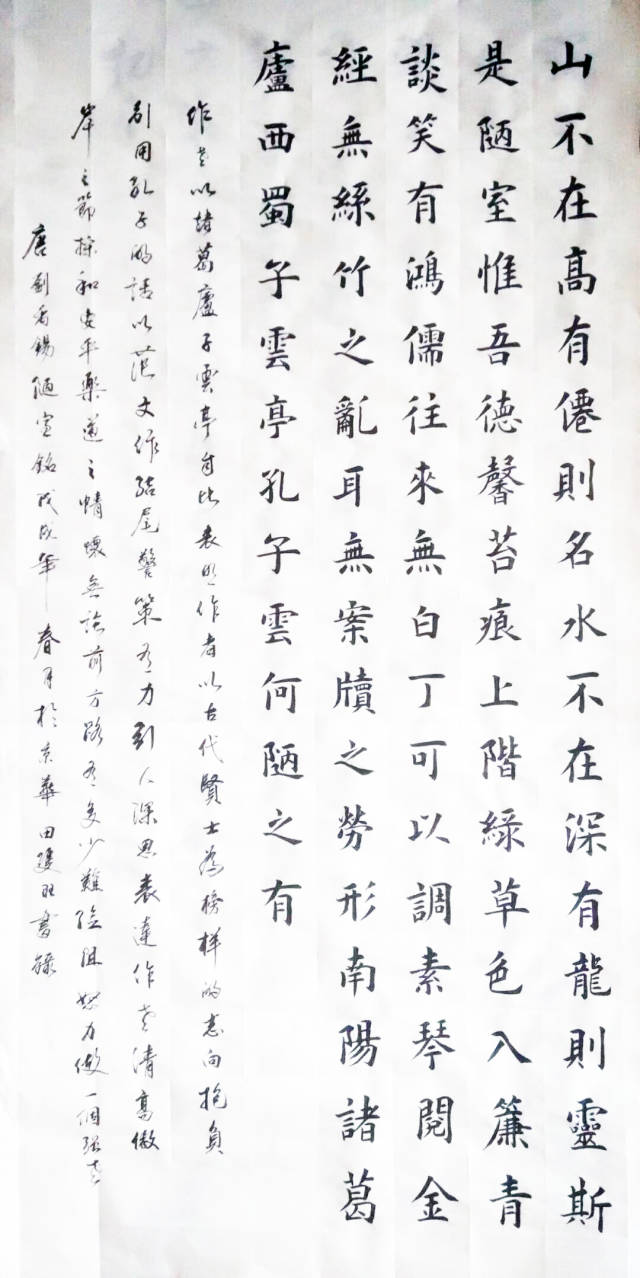 山不在高有僊則名水不在深有龍則靈斯
是陋室惟吾德馨苔痕上階綠草色入簾青
談笑有鴻儒往來無白丁可以調素琴閱金
經無絲竹之亂耳無案牘之勞形南陽諸葛
廬西蜀子雲亭孔子雲何陋之有
作者以諸葛廬子雲亭自比表明作者以古代賢士為榜樣的志向抱負
引用孔子的話以范文作結尾警策有力引人深思表達作者清高傲
岸之節操和安平樂道之情懷無論前方路有多少難險阻努力做一個強者
唐劉禹錫陋室銘戊戌年春月於京華田雙旺書錄